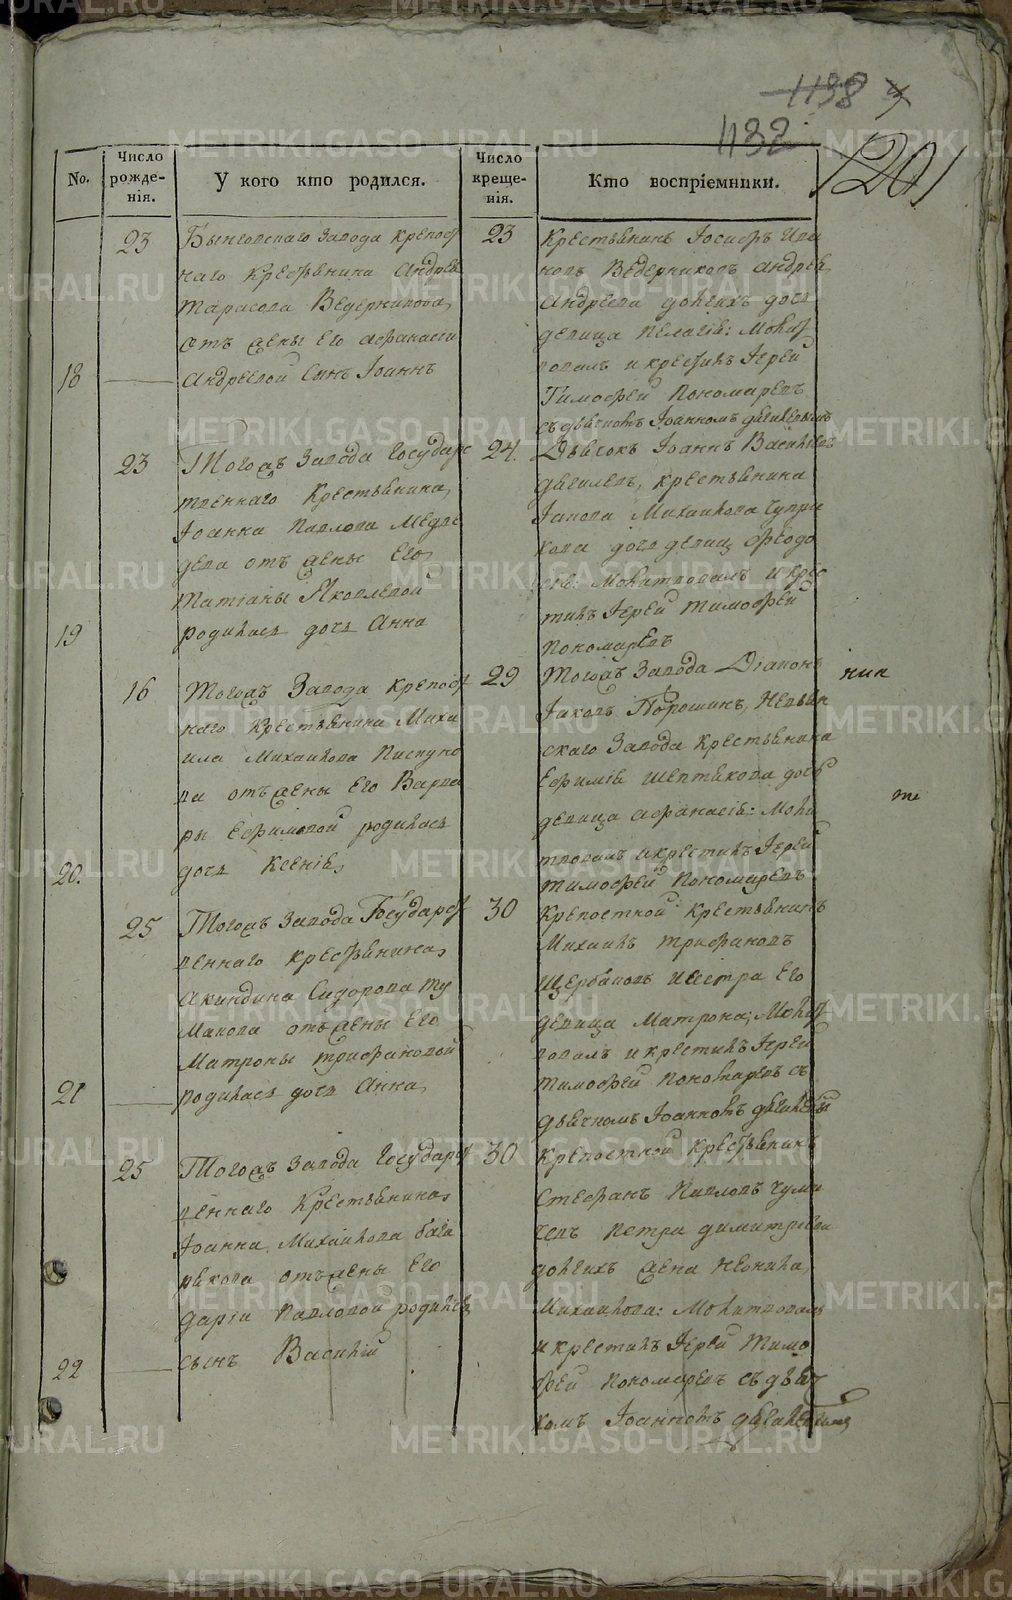 1198
1132
1201
No.
Число рожде- нія.
У кого кто родился.
Число креще- нія.
Кто воспріемники.
18
23
Быньговскаго завода крепост
наго крестьянина Андрея
Тарасова Ведерникова
отъ жены его Афанасіи
Андреевой сынъ Іоаннъ
23
Крестьянинъ Іосифъ Ива
новъ Ведерниковъ Андрея
Андреева дочь
девица Пелагія: Молит
вовалъ и крестилъ Іерей
Тимофей Пономаревъ
съ дьячкомъ Іоанномъ
19
23
Тогожъ завода Государс
твеннаго крестьянина
Іоанна Павлова Медве
дева отъ жены его
Татіаны Яковлевой
родилась дочь Анна
24
Дьячокъ Іоаннъ Васильевъ
крестьянина
Іакова Михайлова Чупра
кова дочь девица Феодо
сія: Молитвовалъ и крес
тилъ Іерей Тимофей
Пономаревъ
20.
16
Тогожъ завода крепост
наго крестьянина Миха
ила Михайлова Пискуно
ва отъ жены его Варва
ры Ефимовой родилась
дочь Ксенія
29
Тогожъ завода Діаконъ
Іаковъ Порошинъ, Невьян
скаго завода крестьянина
Ефимія дочь
девица Афанасія: Моли
твовалъ и крестилъ Іерей
Тимофей Пономаревъ
21
25
Тогожъ завода Государст
веннаго крестьянина
Акиндина Сидорова Ту
макова отъ жены его
Матроны Трифановой
родилась дочь Анна
30
Крепостной крестьянинъ
Михаилъ Трифановъ
Щербаковъ и сестра его
девица Матрона; Молит
вовалъ и крестилъ Іерей
Тимофей Пономаревъ съ
дьячкомъ Іоанномъ
22
25
Тогожъ завода Государст
веннаго крестьянина
Іоанна Михайлова
отъ жены его
Дарьи Павловой родился
сынъ Василій
30
Крепостной крестьянинъ
Стефанъ Павловъ
Петра Димитріева
жена Неонила
Михайлова: Молитвовалъ
и крестилъ Іерей Тимо
фей Пономаревъ съ дьяч
комъ Іоанномъ
METRIKI.GASO-URAL.RU